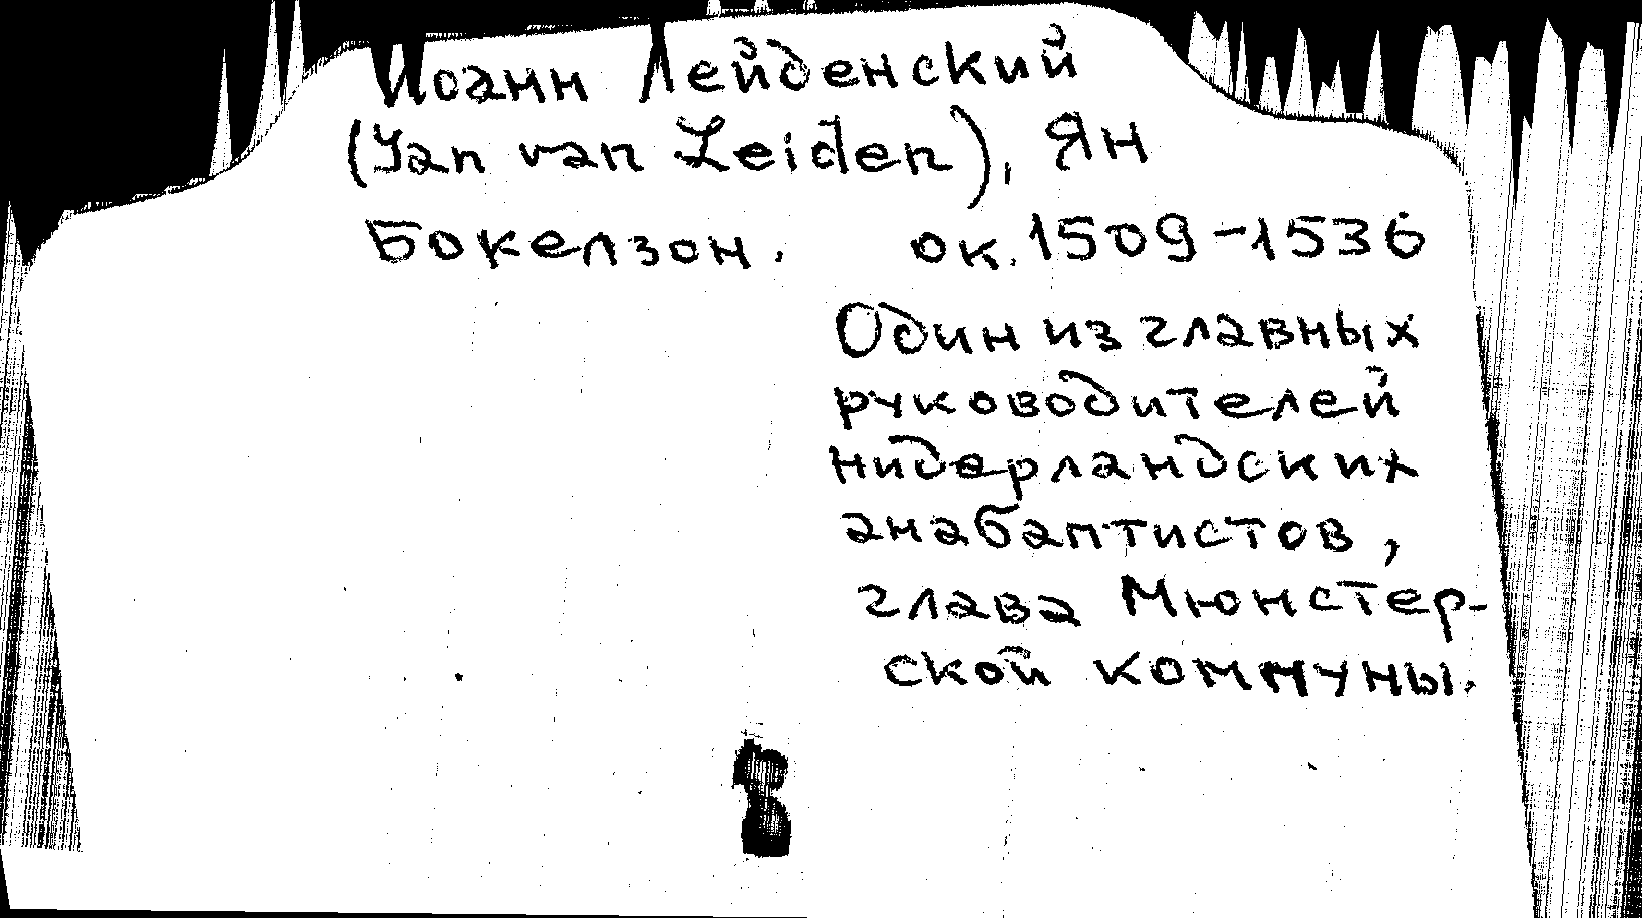 Иоанн Лейденский
(Jan van Leiden), Ян
Бокелзон. ок. 1509-1536
Один из главных
руководителей
нидерландских
анабаптистов,
глава Мюнстер-
ской коммуны.